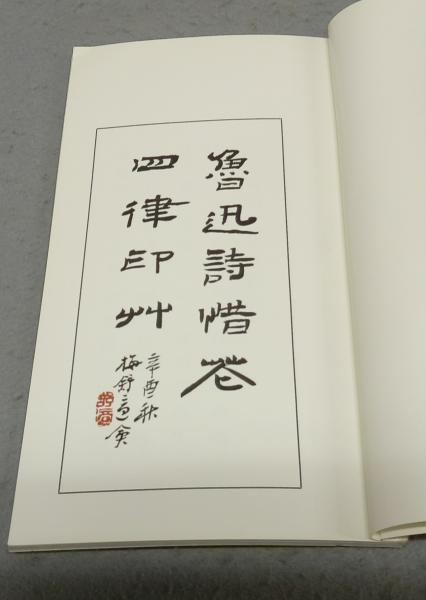 魯迅詩惜花
四律印艸
辛酉秋
梅舒適僉